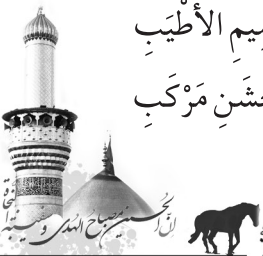 ـيمِ الأطْيَبِ
خشَنِ مَرْكَبِ
إن الحسين مصباح الهدى وسفينة النجاة